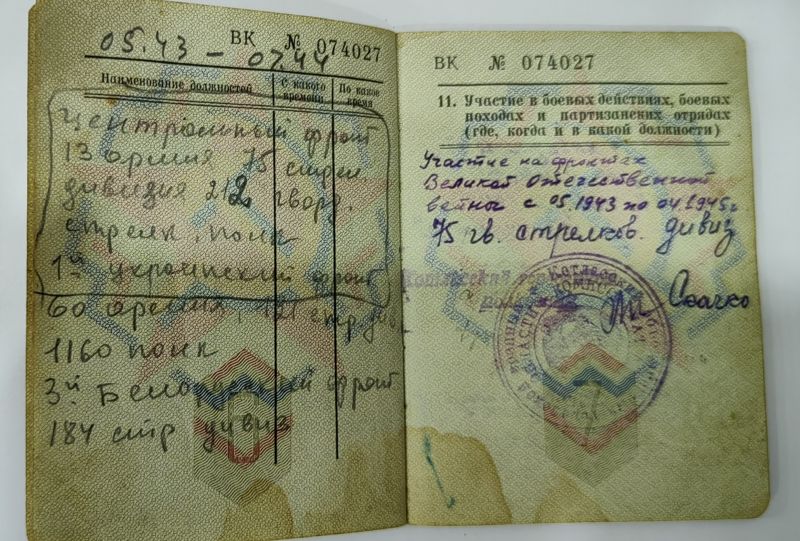 05.43 – 07.44
ВК № 074027
Наименование должностей
С какого времени
По какое время
Центральный фронт
13 армия 75 стрел.
дивизия 212 гвард.
стрелк. полк
1й украинский фронт
60 армия, стр див
1160 полк
3й Белорусский фронт
184 стр дивиз
ВК № 074027
11. Участие в боевых действиях, боевых
походах и партизанских отрядах
(где, когда и в какой должности)
Участие на фронтах
Великой Отечественной
войны с 05.1943 по 04.1945г
75 гв. стрелков. дивиз
Котласский